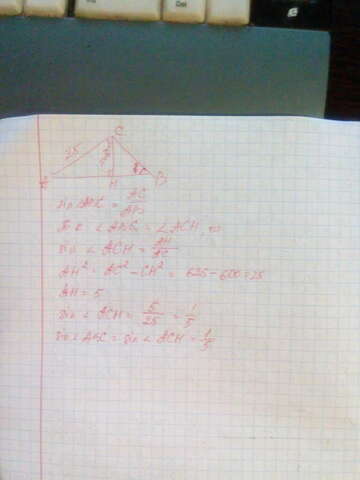 C
25
A
H
B
sin ABC = AC/AB
Т.к ∠ABC = ∠ACH, то
sin ∠ ACH = AH/AC
AH² = AC² - CH² = 625 - 600 = 25
AH = 5
sin ∠ ACH = 5/25 = 1/5
sin ∠ ABC = sin ∠ ACH = 1/5